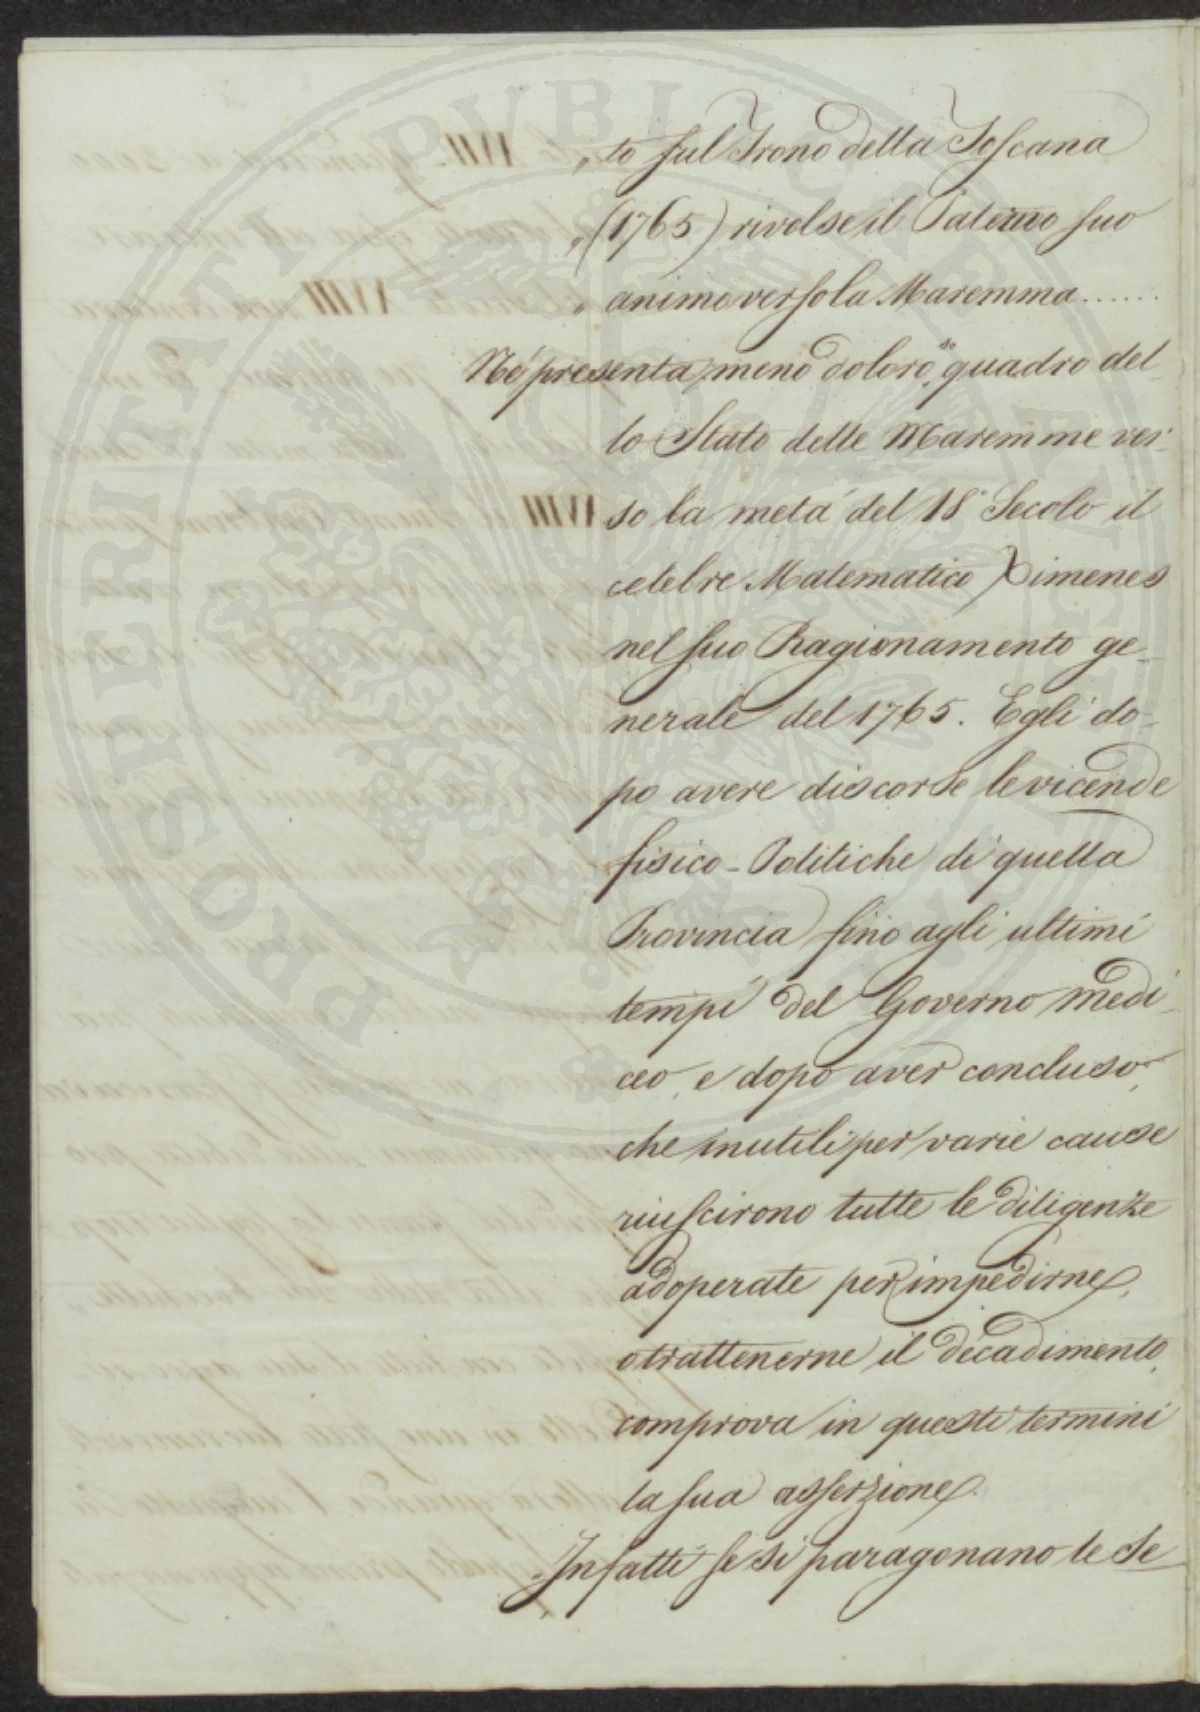 „ to sul Trono della Toscana
„ (1765) rivolse il Paterno suo
„ animo verso la Maremma......
Nè presenta meno doloroso quadro del-
lo Stato delle Maremme ver-
so la metà del 18° Secolo il
celebre Matematico Ximenes
nel suo Ragionamento ge-
nerale del 1765. Egli do-
po avere discorse le vicende
fisico-Politiche di quella
Provincia fino agli ultimi
tempi del Governo medi-
ceo, e dopo aver concluso,
che inutili per varie cause
riuscirono tutte le diligenze
adoperate per impedirne,
o trattenerne il decadimento,
comprova in questi termini
la sua asserzione.
„ Infatti se si paragonano le Se-
PROSPERITATI PUBLICAE AUGENDAE